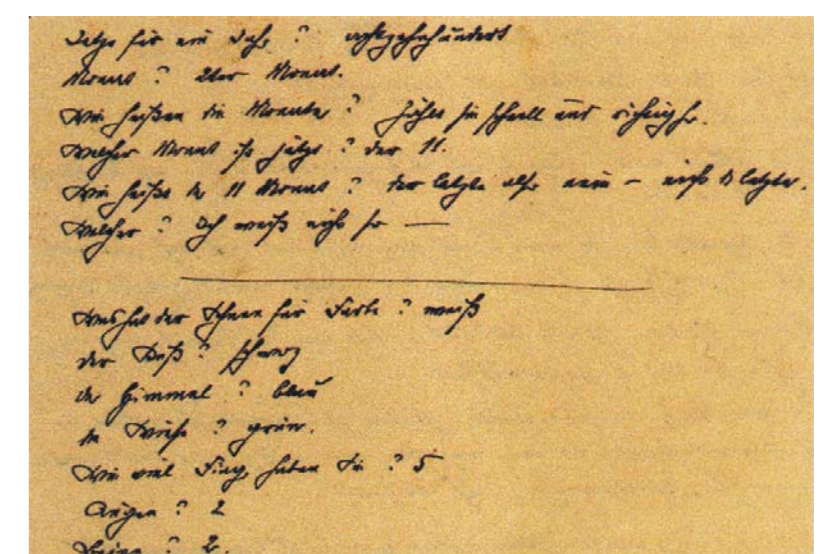 Jetzt für ein Jahr? achtzehnhundert
Monat? 2ter Monat.
Wie heißen die Monate? zählt sie schnell und richtig her.
Welcher Monat ist jetzt? der 11.
Wie heißt der 11 Monat? der letzte also nein – nicht d letzte.
Welcher? Ich weiß nicht so —
Was hat der Schnee für Farbe? weiß
der Ruß? schwarz
der Himmel? blau
die Wiese? grün.
Wie viel Fing. haben Sie? 5
Augen? 2
Beine? 2.